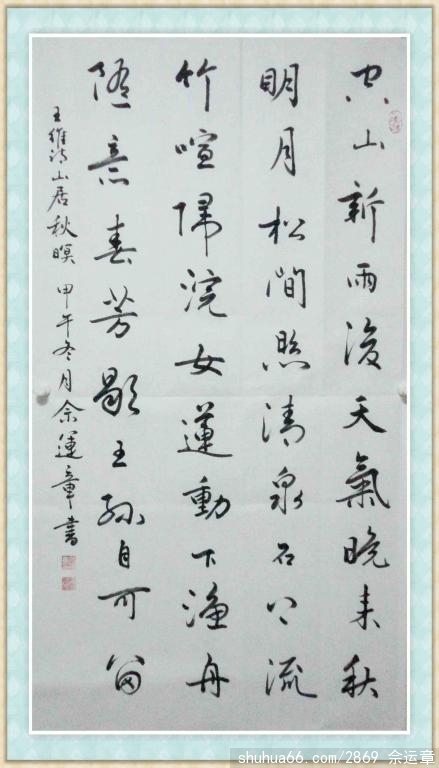 空山新雨後天氣晚来秋
明月松間照清泉石上流
竹喧帰浣女蓮動下渔舟
随意春芳歇王孫自可留
王維诗山居秋暝 甲午冬月佘運章書
shuhua66.com/2869 佘运章